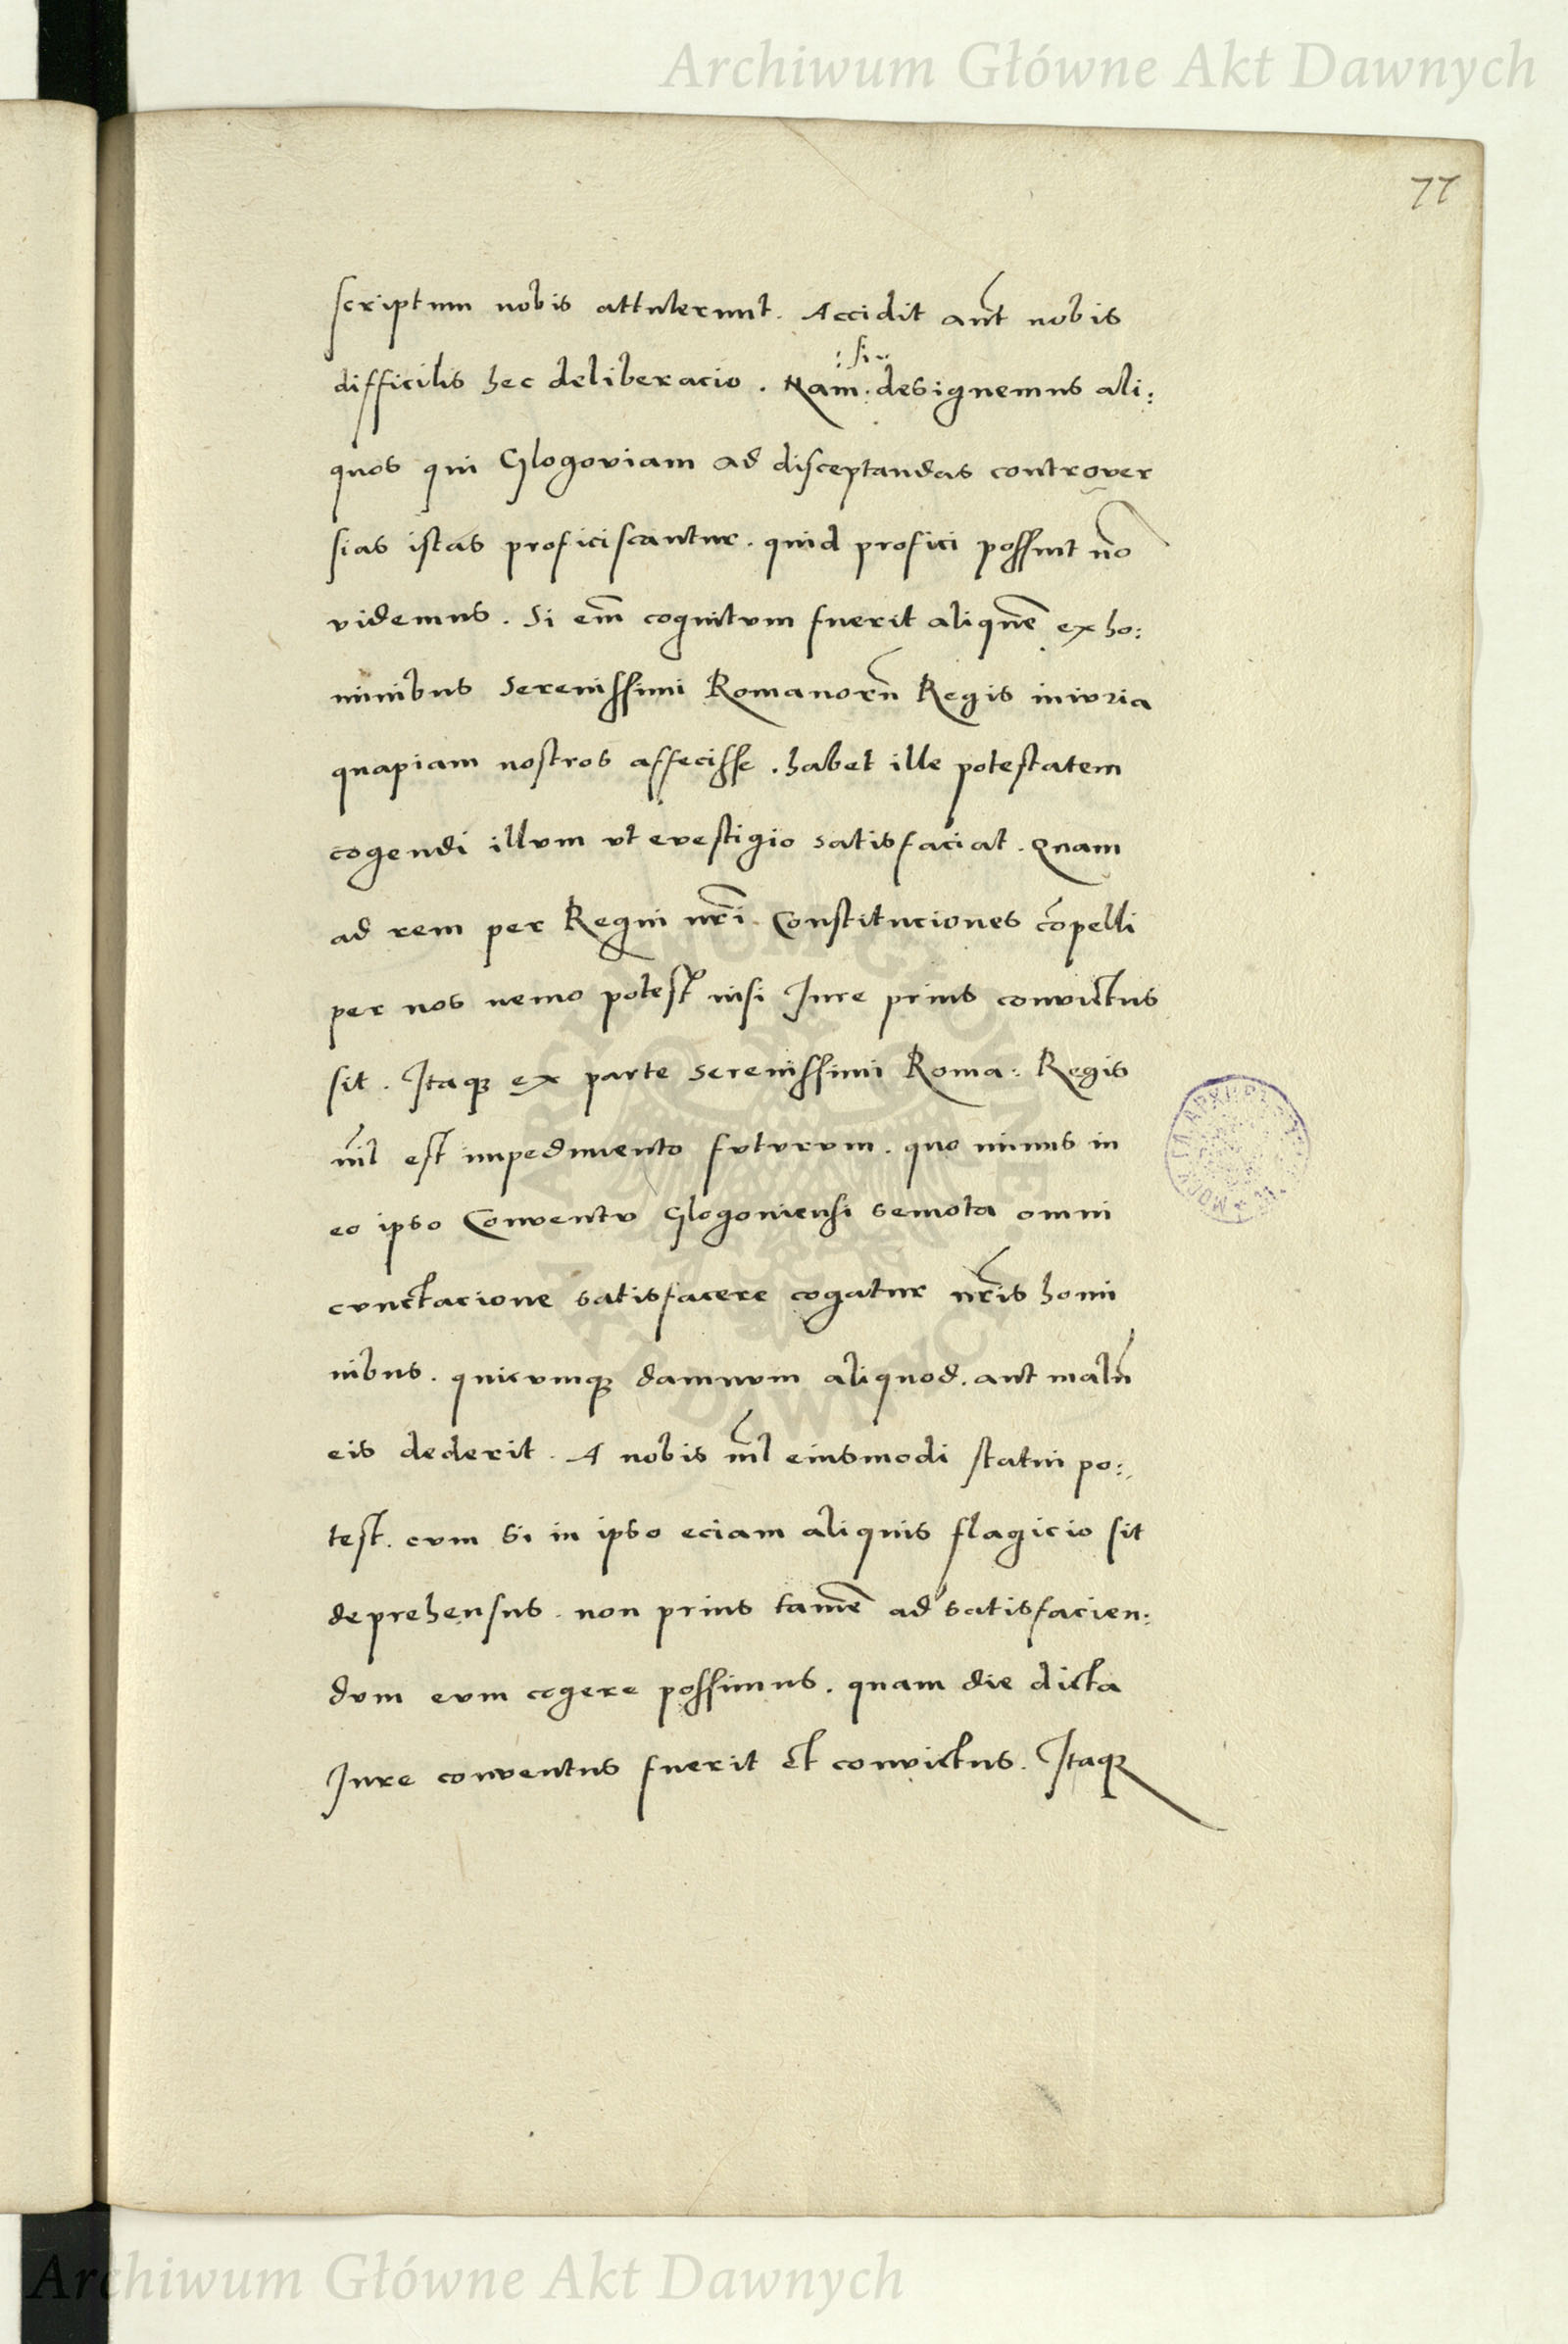 Archiwum Główne Akt Dawnych
77
scriptum nobis attulerunt. Accidit aut̄ nobis
:si..
difficilis hec deliberacio. Nam. designemus ali:
quos qui Glogoviam ad disceptandas controver
sias istas proficiscantur. quid profici possint nō
videmus. Si em̄ cognitvm fuerit aliquē ex ho:
minibus Serenissimi Romanorū Regis iniuria
quapiam nostros affecisse. habet ille potestatem
cogendi illvm vt evestigio satisfaciat. Quam
ad rem per Regni nr̄i Constituciones cōpelli
per nos nemo potest nisi Jure prius convictus
sit. Itaqȝ ex parte Serenissimi Roma: Regis
nīl est impedimento fvtvrvm. quo minus in
eo ipso Conventv Glogoviensi semota omni
cvnctacione satisfacere cogatur nr̄is homi
nibus. quicvmqȝ damnvm aliquod. aut malū
eis dederit. A nobis nīl eiusmodi statui po:
test. cvm si in ipso eciam aliquis flagicio sit
deprehensus. non prius tamē ad satisfacien:
dvm evm cogere possimus. quam die dicta
Jure conventus fuerit et convictus. Itaqȝ
ARCHIWUM GŁÓWNE AKT DAWNYCH
Archiwum Główne Akt Dawnych